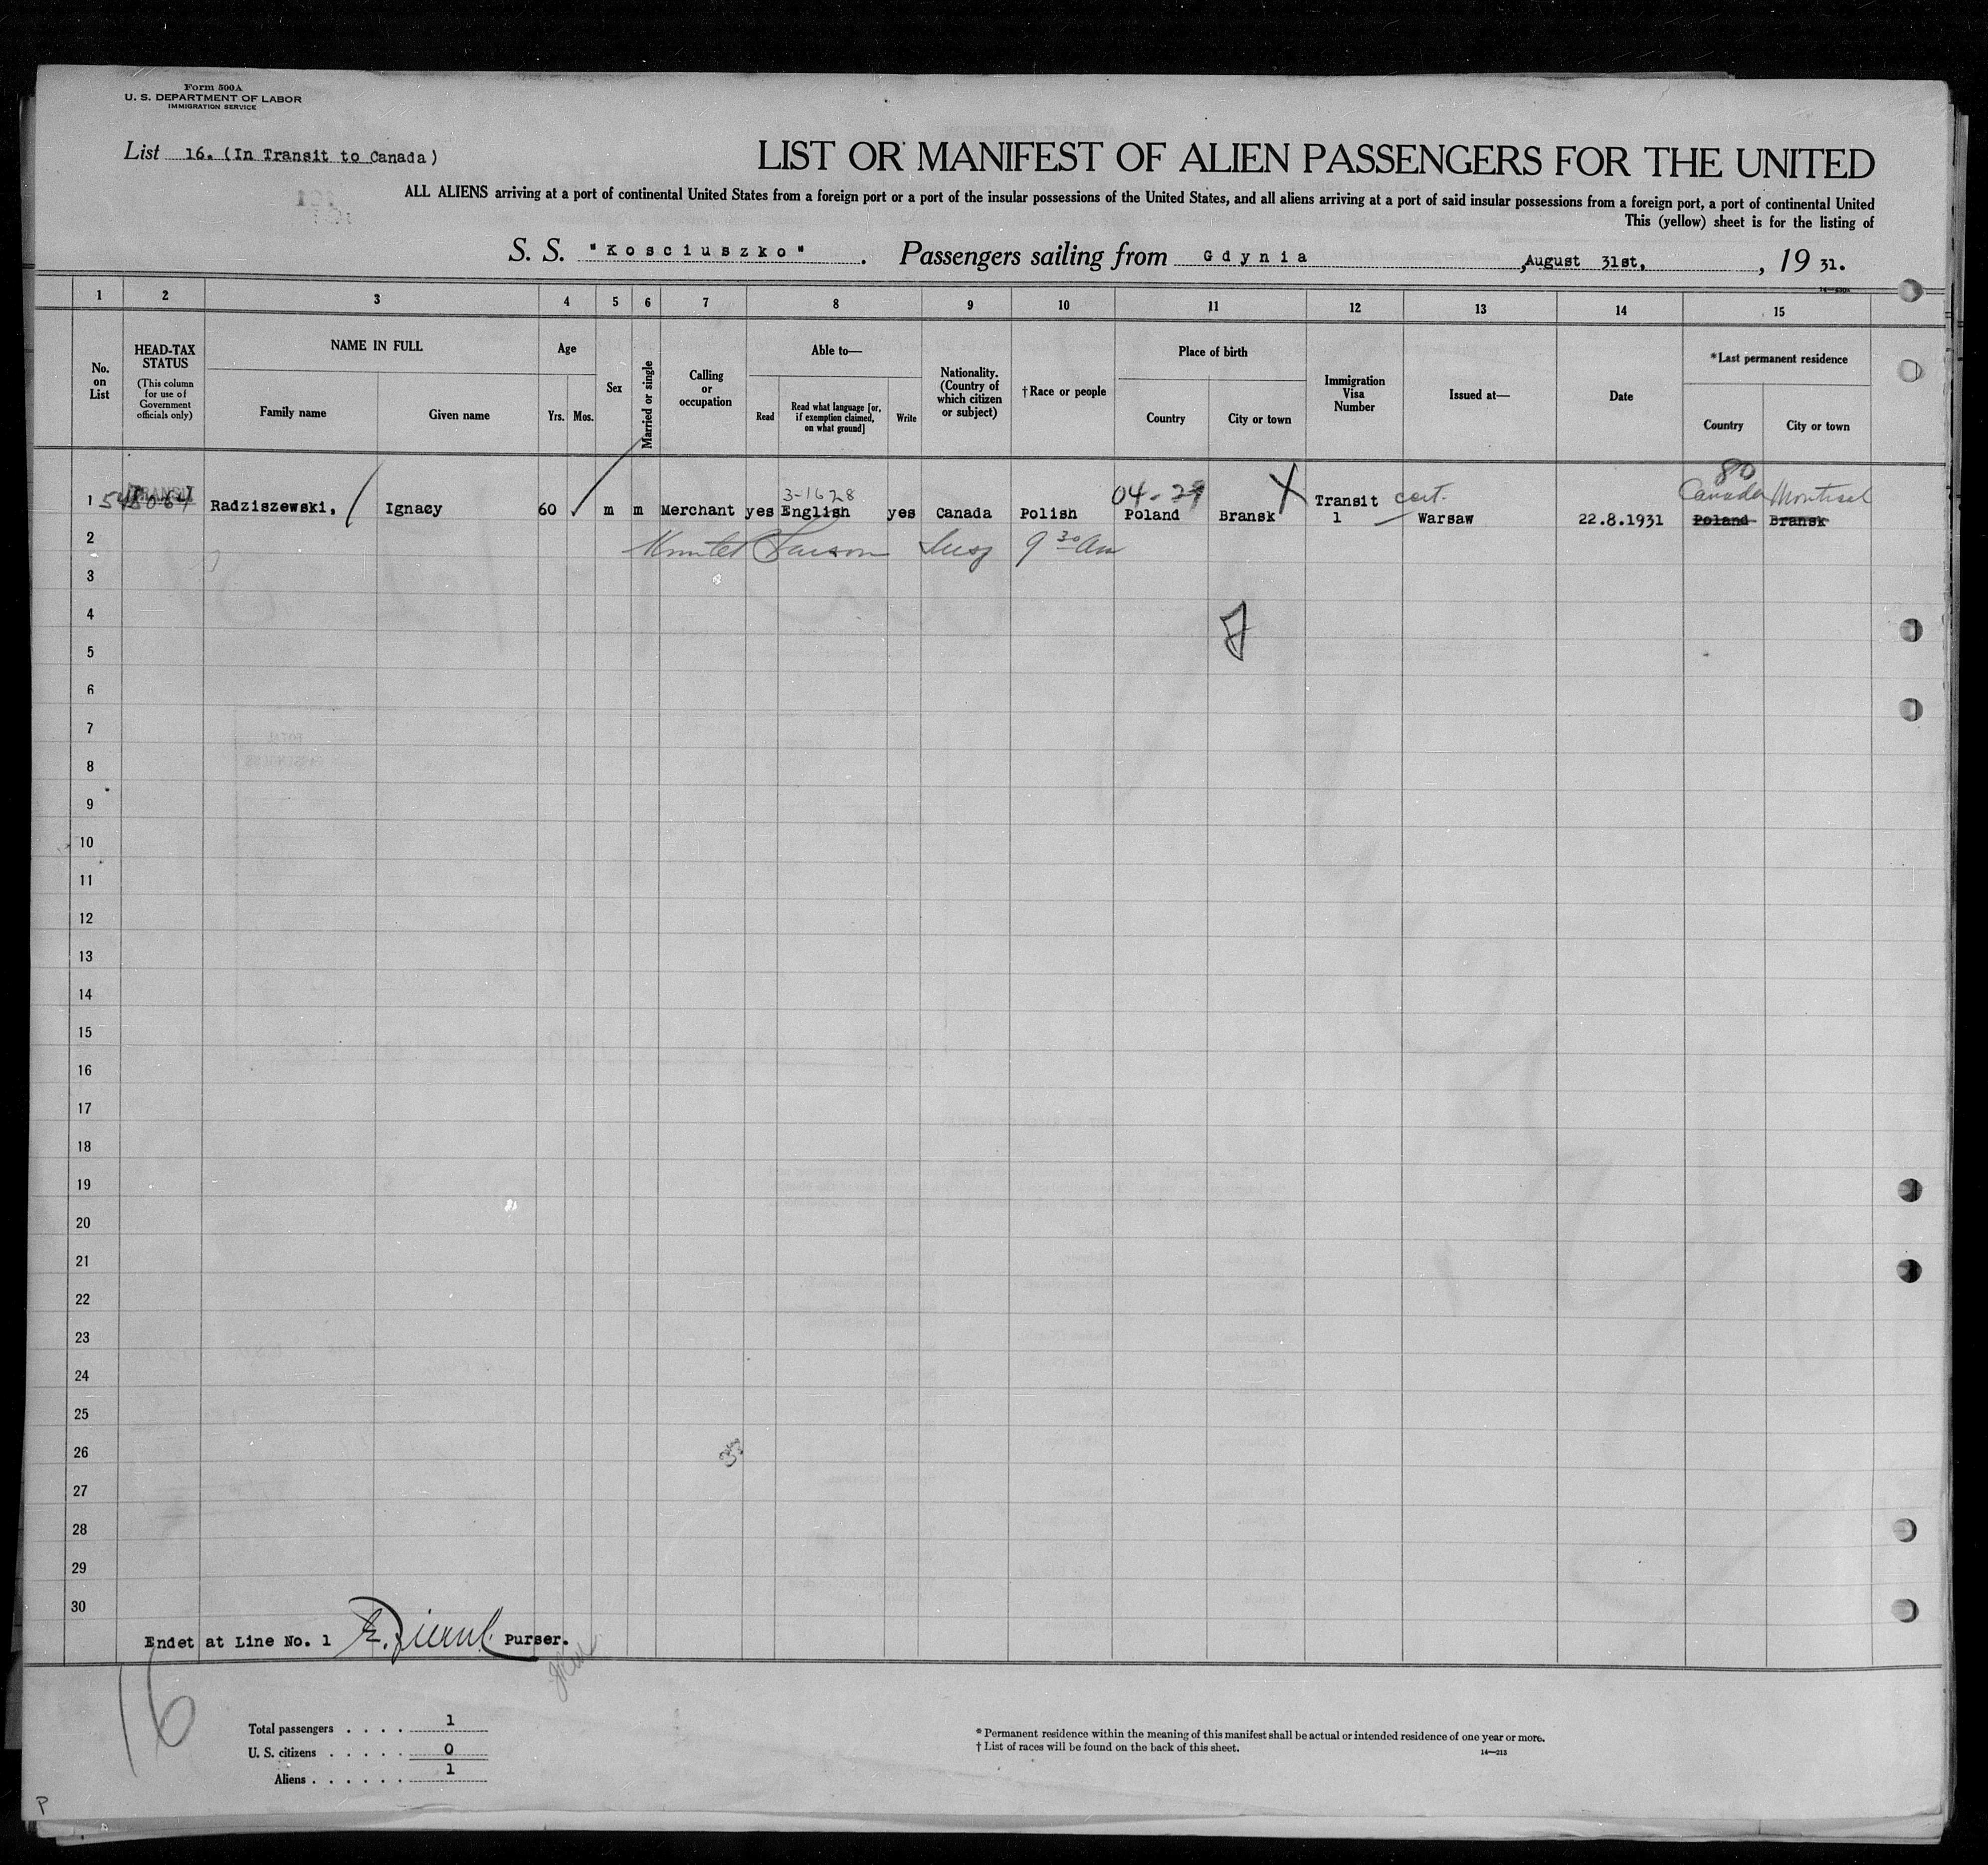 Form 500A
U. S. DEPARTMENT OF LABOR
IMMIGRATION SERVICE
List 16. (In Transit to Canada)
LIST OR MANIFEST OF ALIEN PASSENGERS FOR THE UNITED
ALL ALIENS arriving at a port of continental United States from a foreign port or a port of the insular possessions of the United States, and all aliens arriving at a port of said insular possessions from a foreign port, a port of continental United
This (yellow) sheet is for the listing of
S. S. "Kosciuszko". Passengers sailing from Gdynia, August 31st, , 19 31.
1 2 3 4 5 6 7 8 9 10 11 12 13 14 15
No. on List
HEAD-TAX STATUS
(This column for use of Government officials only)
NAME IN FULL
Family name
Given name
Age
Yrs. Mos.
Sex
Married or single
Calling or occupation
Able to—
Read
Read what language [or, if exemption claimed, on what ground]
Write
Nationality. (Country of which citizen or subject)
†Race or people
Place of birth
Country
City or town
Immigration Visa Number
Issued at—
Date
*Last permanent residence
Country
City or town
80
3-1628 04-29 X Transit cert. Canada Montreal
1 TRANSIT Radziszewski, Ignacy 60 m m Merchant yes English yes Canada Polish Poland Bransk 1 Warsaw 22.8.1931 Poland Bransk
2 9 30 Am
3
4
5
6
7
8
9
10
11
12
13
14
15
16
17
18
19
20
21
22
23
24
25
26
27
28
29
30
Endet at Line No. 1 Purser.
16
Total passengers . . . . 1
U. S. citizens . . . . . 0
Aliens . . . . . . 1
* Permanent residence within the meaning of this manifest shall be actual or intended residence of one year or more.
† List of races will be found on the back of this sheet.
14—213
P